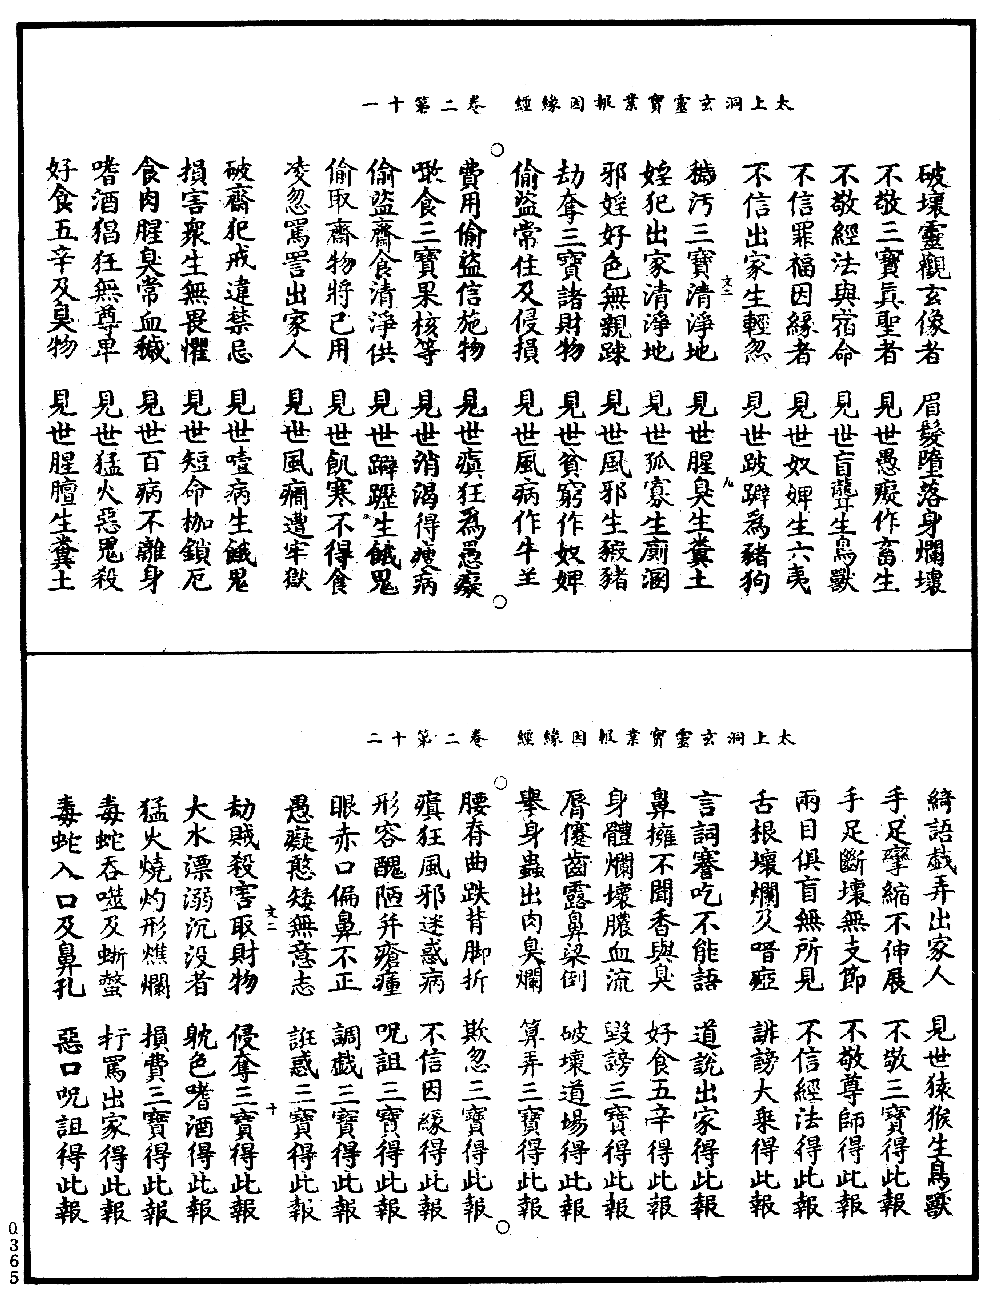 太上洞玄靈寶業報因緣經　卷二第十一
破壞靈觀玄像者　眉髮墮落身爛壞
不敬三寶眞聖者　見世愚癡作畜生
不敬經法與宿命　見世盲聾生鳥獸
不信罪福因緣者　見世奴婢生六夷
不信出家生輕忽　見世跛躃爲豬狗
穢污三寶清淨地　見世腥臭生糞土
婬犯出家清淨地　見世孤寡生廁溷
邪婬好色無親踈　見世風邪生豭豬
劫奪三寶諸財物　見世貧窮作奴婢
偷盜常住及侵損　見世風病作牛羊
費用偷盜信施物　見世癲狂爲愚癡
噉食三寶果核等　見世消渴得瘦病
偷盜齋食清淨供　見世躃躄生餓鬼
偷取齋物將己用　見世飢寒不得食
凌忽罵詈出家人　見世風癇遭牢獄
破齋犯戒違禁忌　見世噎病生餓鬼
損害衆生無畏懼　見世短命枷鎖厄
食肉腥臭常血穢　見世百病不離身
嗜酒猖狂無尊卑　見世猛火惡鬼殺
好食五辛及臭物　見世腥膻生糞土
文二
九
太上洞玄靈寶業報因緣經　卷二第十二
綺語戲弄出家人　見世猿猴生鳥獸
手足攣縮不伸展　不敬三寶得此報
手足斷壞無支節　不敬尊師得此報
兩目俱盲無所見　不信經法得此報
舌根壞爛及瘖瘂　誹謗大乘得此報
言詞謇吃不能語　道說出家得此報
鼻擁不聞香與臭　好食五辛得此報
身體爛壞膿血流　毀謗三寶得此報
脣僂齒露鼻梁倒　破壞道場得此報
舉身蟲出肉臭爛　算弄三寶得此報
腰脊曲跌背脚折　欺忽三寶得此報
癲狂風邪迷惑病　不信因緣得此報
形容醜陋并瘡瘇　呪詛三寶得此報
眼赤口偏鼻不正　調戲三寶得此報
愚癡憨矮無意志　誑惑三寶得此報
劫賊殺害取財物　侵奪三寶得此報
大水漂溺沉没者　躭色嗜酒得此報
猛火燒灼形燋爛　損費三寶得此報
毒蛇吞噬及蜥螫　打罵出家得此報
毒蛇入口及鼻孔　惡口呪詛得此報
文二
十
0365